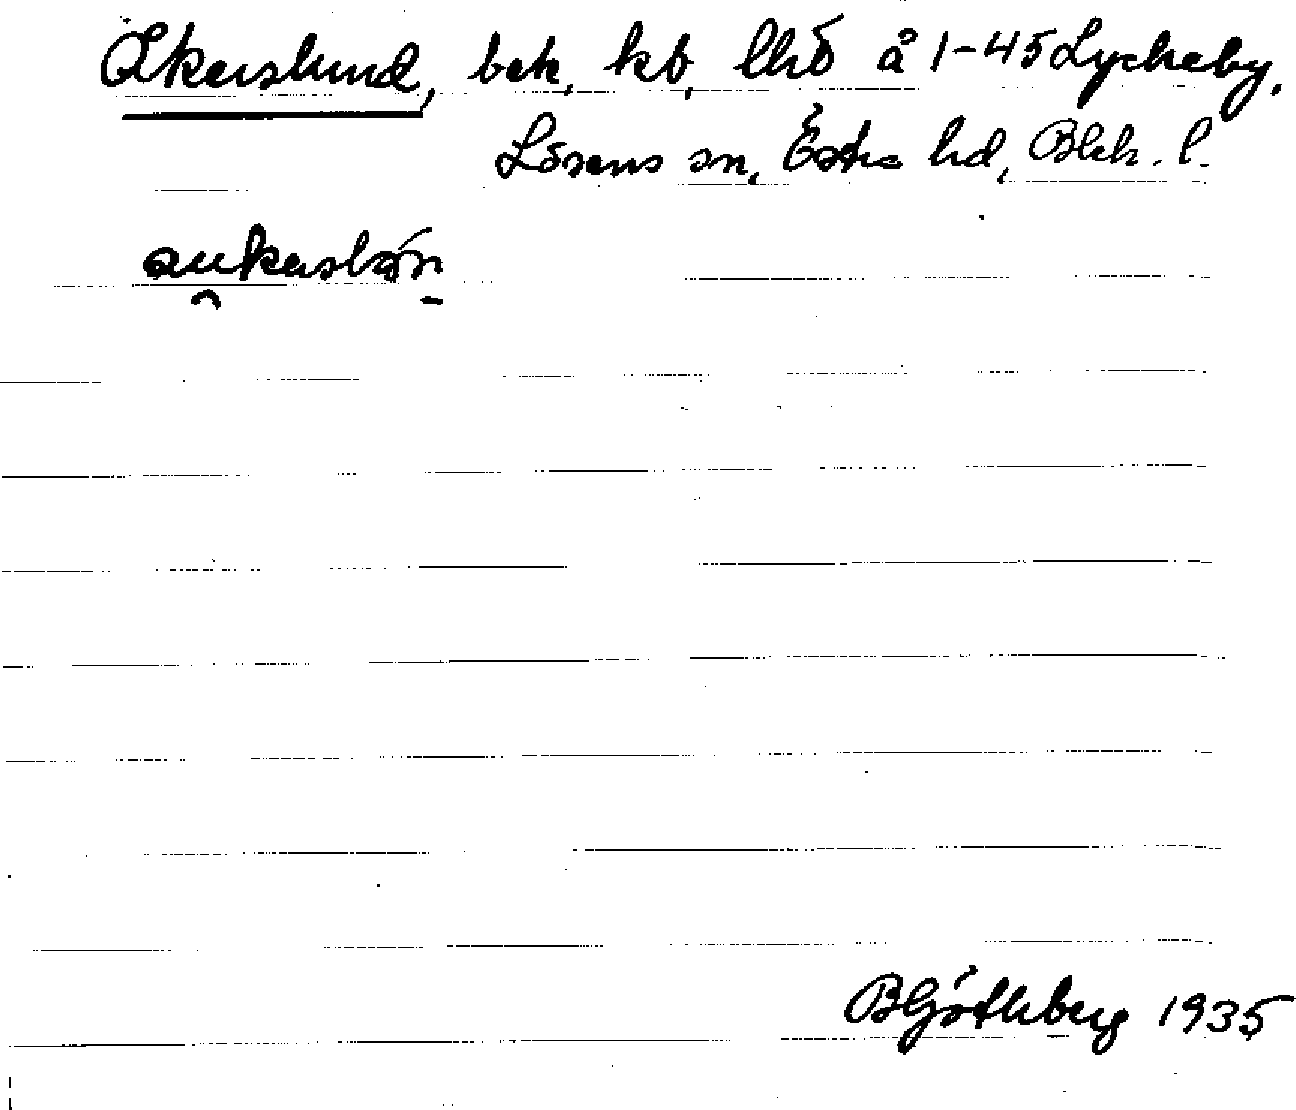 Åkerslund, bek, kb, lhö å 1-45 Lyckeby,
Lösens sn, Östra hd, Blek. l.
B Göthberg 1935